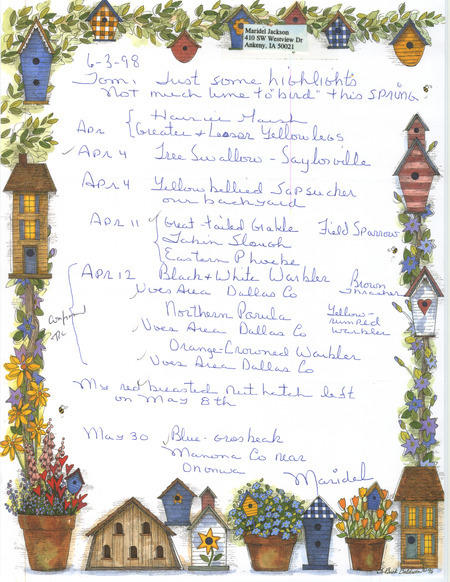 Maridel Jackson
410 SW Westview Dr
Ankeny, IA 50021
6-3-98
Tom: Just some highlights
Not much time to "bird" this SPRING.
Harrier Marsh
Apr Greater & Lesser Yellowlegs
Apr 4 Tree Swallow - Saylorville
Apr 4 Yellow bellied Sapsucker
our backyard
Apr 11 Great-tailed Grakle Field Sparrow
Jakin Slough
Eastern Phoebe
Apr 12 Black & White Warbler Brown Thrasher
Voas Area Dallas Co
Northern Parula Yellow-rumped Warbler
Voas Area Dallas Co
Orange-Crowned Warbler
Voas Area Dallas Co
My red breasted Nut hatch left
on May 8th
May 30 Blue-Grosbeak
Monona Co near
Onowa
Maridel